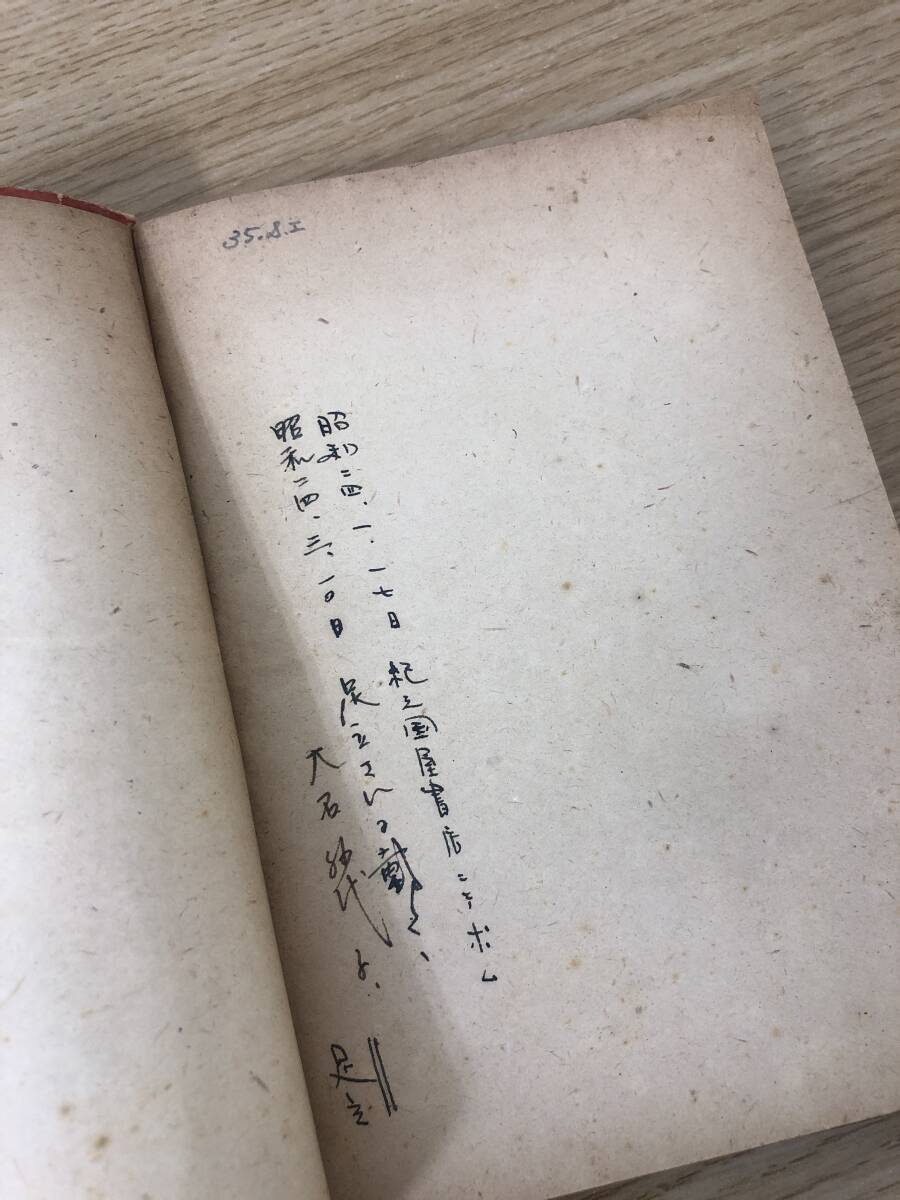 35.8.I
昭和二四.一.一七日 紀之國屋書店ニテホム
昭和二四.三.一〇日 足立さんに戴く、
大石
足立